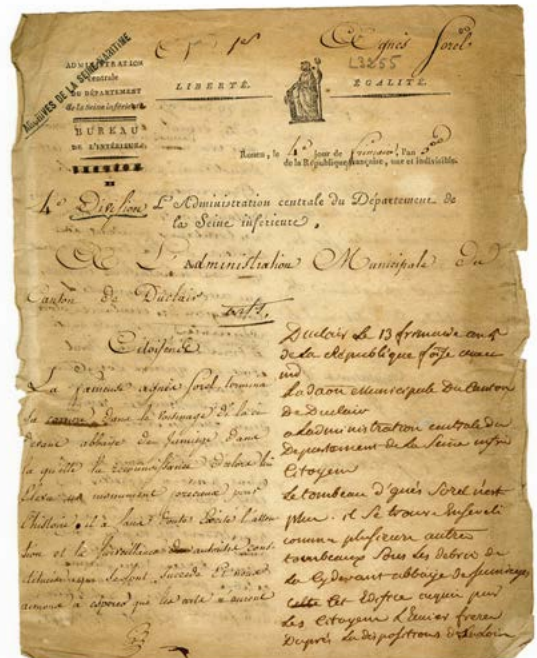 Agnès Sorel
L3255
ARCHIVES DE LA SEINE-MARITIME
ADMINISTRATION
centrale
DU DÉPARTEMENT
de la Seine inférieure.
BUREAU
DE L'INTÉRIEUR.
LIBERTÉ.
ÉGALITÉ.
Rouen, le 4e jour de frimaire, l'an 5me
de la République française, une et indivisible.
4e Division
L'Administration centrale du Département de
la Seine inférieure,
A L'Administration Municipale du
Canton de Duclair
Citoyens
La fameuse agnès Sorel termina
sa carrière dans le voisinage de la ci
devant abbaye de Jumiege dans
la quelle la reconnoissance
Eleva un monument précieux pour
l'histoire. il a sans doute Excité l'atten
tion et la surveillance des autorités cons
tituées qui se sont Succédé Et nous
aimons à espérer que les arts n'auront
Duclair Le 13 frimaire an 5
de la République
Ladaon Municipale Du Canton
De Duclair
a Ladministration centrale du
Departement de La Seine infre
Citoyen
Le tombeau d'gnés Sorel n'est
plus. il Se trouve Enseveli
comme plusieurs autres
tombeaux Sous Les debris de
La Cydevant abbaye de Jumieges
cette Edifice aquis par
Les Citoyen freres
Daprès La dispositions